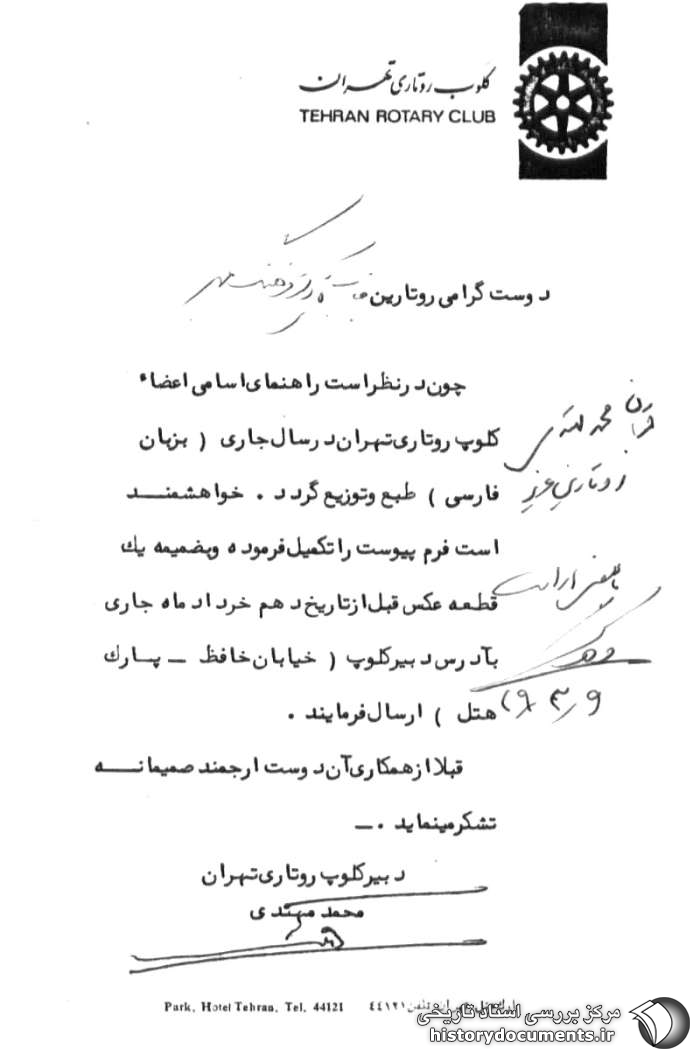 کلوب روتاری تهران
TEHRAN ROTARY CLUB
دوست گرامی روتارین
چون در نظر است راهنمای اسامی اعضاء
کلوپ روتاری تهران در سال جاری ( بزبان
فارسی ) طبع و توزیع گردد . خواهشمنــد
است فرم پیوست را تکمیل فرموده وبضمیمه یك
قطعه عکس قبل از تاریخ دهم خرداد ماه جاری
بآدرس دبیر کلوپ ( خیابان حافظ ــ پـارك
هتل ) ارسال فرمایند .
قبلا از همکاری آن دوست ارجمند صمیمانـــه
تشکر مینماید .ــ
دبیر کلوپ روتاری تهران
محمد مهتدی
Park, Hotel Tehran, Tel. 44121
مرکز بررسی اسناد تاریخی
historydocuments.ir